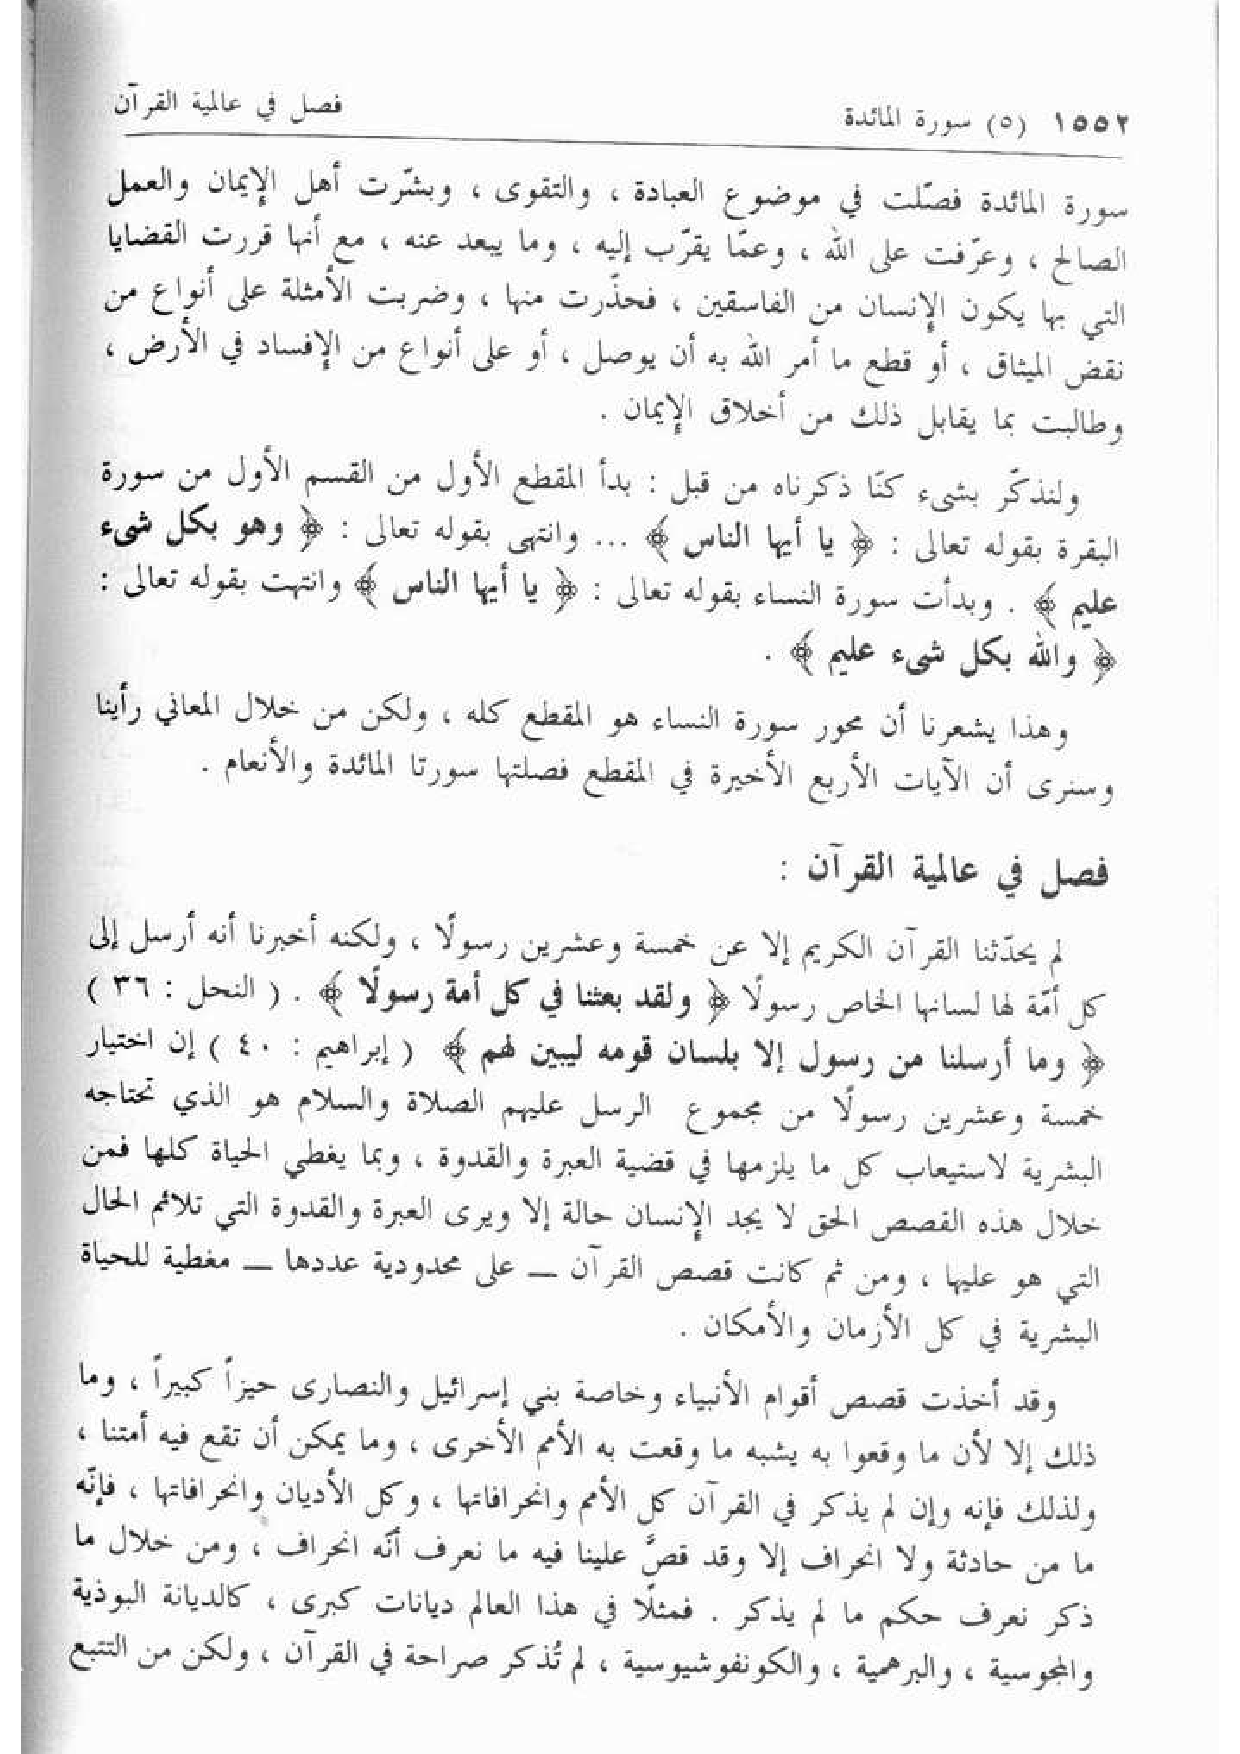 ١٥٥٢ (٥) سورة المائدة فصل في عالمية القرآن
سورة المائدة فصّلت في موضوع العبادة ، والتقوى ، وبشّرت أهل الإيمان والعمل
الصالح ، وعرّفت على الله ، وعمّا يقرّب إليه ، وما يبعد عنه ، مع أنها قررت القضايا
التي بها يكون الإنسان من الفاسقين ، فحذّرت منها ، وضربت الأمثلة على أنواع من
نقض الميثاق ، أو قطع ما أمر الله به أن يوصل ، أو على أنواع من الإفساد في الأرض ،
وطالبت بما يقابل ذلك من أخلاق الإيمان .
ولنذكّر بشىء كنّا ذكرناه من قبل : بدأ المقطع الأول من القسم الأول من سورة
البقرة بقوله تعالى : ﴿ يا أيها الناس ﴾ ... وانتهى بقوله تعالى : ﴿ وهو بكل شىء
عليم ﴾ . وبدأت سورة النساء بقوله تعالى : ﴿ يا أيها الناس ﴾ وانتهت بقوله تعالى :
﴿ والله بكل شىء عليم ﴾ .
وهذا يشعرنا أن محور سورة النساء هو المقطع كله ، ولكن من خلال المعاني رأينا
وسنرى أن الآيات الأربع الأخيرة في المقطع فصلتها سورتا المائدة والأنعام .
فصل في عالمية القرآن :
لم يحدّثنا القرآن الكريم إلا عن خمسة وعشرين رسولًا ، ولكنه أخبرنا أنه أرسل إلى
كل أمّة لها لسانها الخاص رسولًا ﴿ ولقد بعثنا في كل أمة رسولًا ﴾ . ( النحل : ٣٦ )
﴿ وما أرسلنا من رسول إلا بلسان قومه ليبين لهم ﴾ ( إبراهيم : ٤٠ ) إن اختيار
خمسة وعشرين رسولًا من مجموع الرسل عليهم الصلاة والسلام هو الذي تحتاجه
البشرية لاستيعاب كل ما يلزمها في قضية العبرة والقدوة ، وبما يغطي الحياة كلها فمن
خلال هذه القصص الحق لا يجد الإنسان حالة إلا ويرى العبرة والقدوة التي تلائم الحال
التي هو عليها ، ومن ثم كانت قصص القرآن ــ على محدودية عددها ــ مغطية للحياة
البشرية في كل الأزمان والأمكان .
وقد أخذت قصص أقوام الأنبياء وخاصة بني إسرائيل والنصارى حيزاً كبيراً ، وما
ذلك إلا لأن ما وقعوا به يشبه ما وقعت به الأمم الأخرى ، وما يمكن أن تقع فيه أمتنا ،
ولذلك فإنه وإن لم يذكر في القرآن كل الأمم وانحرافاتها ، وكل الأديان وانحرافاتها ، فإنّه
ما من حادثة ولا انحراف إلا وقد قصَّ علينا فيه ما نعرف أنّه انحراف ، ومن خلال ما
ذكر نعرف حكم ما لم يذكر . فمثلًا في هذا العالم ديانات كبرى ، كالديانة البوذية
والمجوسية ، والبرهمية ، والكونفوشيوسية ، لم تُذكر صراحة في القرآن ، ولكن من التتبع